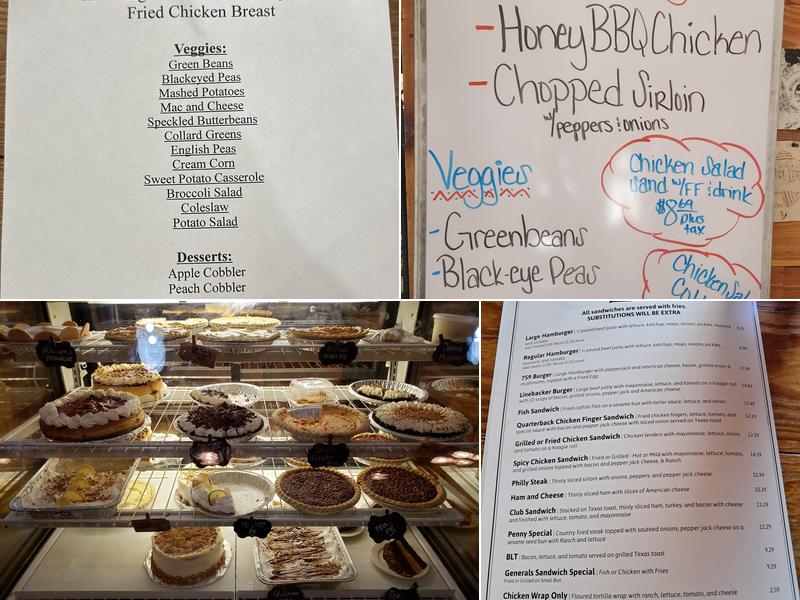 Fried Chicken Breast
Veggies:
Green Beans
Blackeyed Peas
Mashed Potatoes
Mac and Cheese
Speckled Butterbeans
Collard Greens
English Peas
Cream Corn
Sweet Potato Casserole
Broccoli Salad
Coleslaw
Potato Salad
Desserts:
Apple Cobbler
Peach Cobbler
- Honey BBQ Chicken
- Chopped Sirloin
w/peppers & onions
Veggies
- Greenbeans
- Black-eye Peas
Chicken Salad
Sand w/FF & drink
$8.69
plus
tax
Chicken Sal
All sandwiches are served with fries.
SUBSTITUTIONS WILL BE EXTRA
Large Hamburger | ½ pound beef patty with lettuce, ketchup, mayo, onions, pickles, mustard,
and tomato
Regular Hamburger | ¼ pound beef patty with lettuce, ketchup, mayo, onions, pickles,
mustard, and tomato
759 Burger | Large Hamburger with pepperjack and american cheese, bacon, grilled onions &
mushrooms, topped with a Fried Egg
Linebacker Burger | Large beef patty with mayonnaise, lettuce, and tomato on a hoagie roll
with (2) strips of bacon, grilled onions, pepper jack and american cheese
Fish Sandwich | Fried catfish filet on a sesame bun with tartar sauce, lettuce, and onion
Quarterback Chicken Finger Sandwich | Fried chicken fingers, lettuce, tomato, and 12.29
special sauce with bacon and pepper jack cheese with sliced onion served on Texas toast
Grilled or Fried Chicken Sandwich | Chicken tenders with mayonnaise, lettuce, onion, 12.29
and tomato on a hoagie roll
Spicy Chicken Sandwich | Fried or Grilled - Hot or Mild with mayonnaise, lettuce, tomato, 14.39
and grilled onions topped with bacon and pepper jack cheese, & Ranch
Philly Steak | Thinly sliced sirloin with onions, peppers, and pepper jack cheese 11.99
Ham and Cheese | Thinly sliced ham with slices of American cheese 10.29
Club Sandwich | Stacked on Texas toast, thinly sliced ham, turkey, and bacon with cheese 11.29
and finished with lettuce, tomato, and mayonnaise
Penny Special | Country fried steak topped with sautéed onions, pepper jack cheese on a 11.29
sesame seed bun with Ranch and lettuce
BLT | Bacon, lettuce, and tomato served on grilled Texas toast 9.29
Generals Sandwich Special | Fish or Chicken with Fries 9.29
Fried or Grilled on Small Bun
Chicken Wrap Only | Floured tortilla wrap with ranch, lettuce, tomato, and cheese 2.59